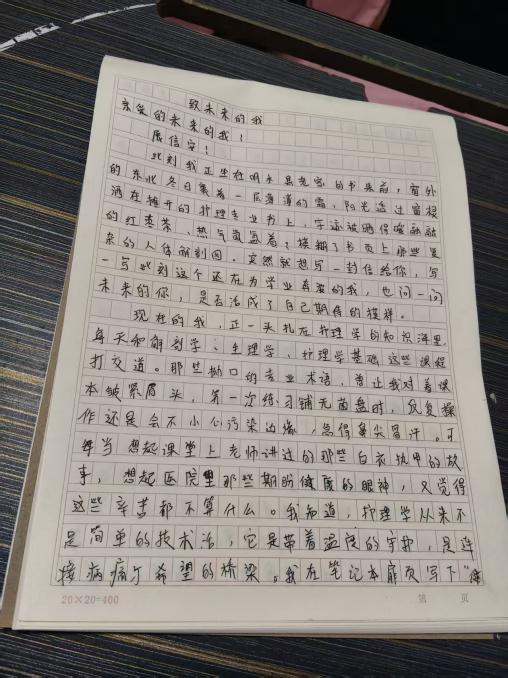 致未来的我
亲爱的未来的我：
展信安！
此刻我正坐在明水县老家的书桌前，窗外
的东北冬日裹着一层薄薄的霜，阳光透过窗棂
洒在摊开的护理专业书上，字迹被晒得暖融融
的红枣茶，热气氤氲着，模糊了书页上那些复
杂的人体解剖图。突然就想写一封信给你，写
一写此刻这个还在为学业奔波的我，也问一问
未来的你，是否活成了自己期待的模样。
现在的我，正一头扎在护理学的知识海里，
每天和解剖学、生理学、护理学基础这些课程
打交道。那些拗口的专业术语，曾让我对着课
本皱紧眉头，第一次练习铺无菌盘时，反复操
作还是会不小心污染边缘，急得鼻尖冒汗。可
每当想起课堂上老师讲过的那些白衣执甲的故
事，想起医院里那些期盼健康的眼神，又觉得
这些辛苦都不算什么。我知道，护理学从来不
是简单的技术活，它是带着温度的守护，是连
接病痛与希望的桥梁。我在笔记本扉页写下"
20×20=400
第 页